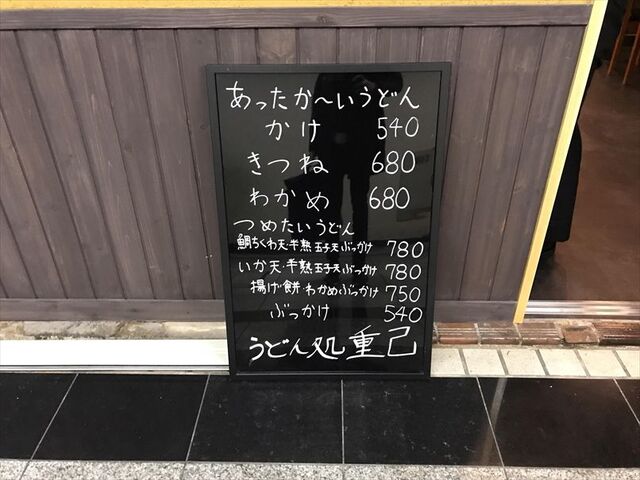 あったか〜いうどん
かけ 540
きつね 680
わかめ 680
つめたいうどん
鯛ちくわ天・半熟玉子天ぶっかけ 780
いか天・半熟玉子天ぶっかけ 780
揚げ・餅・わかめぶっかけ 750
ぶっかけ 540
うどん処重己